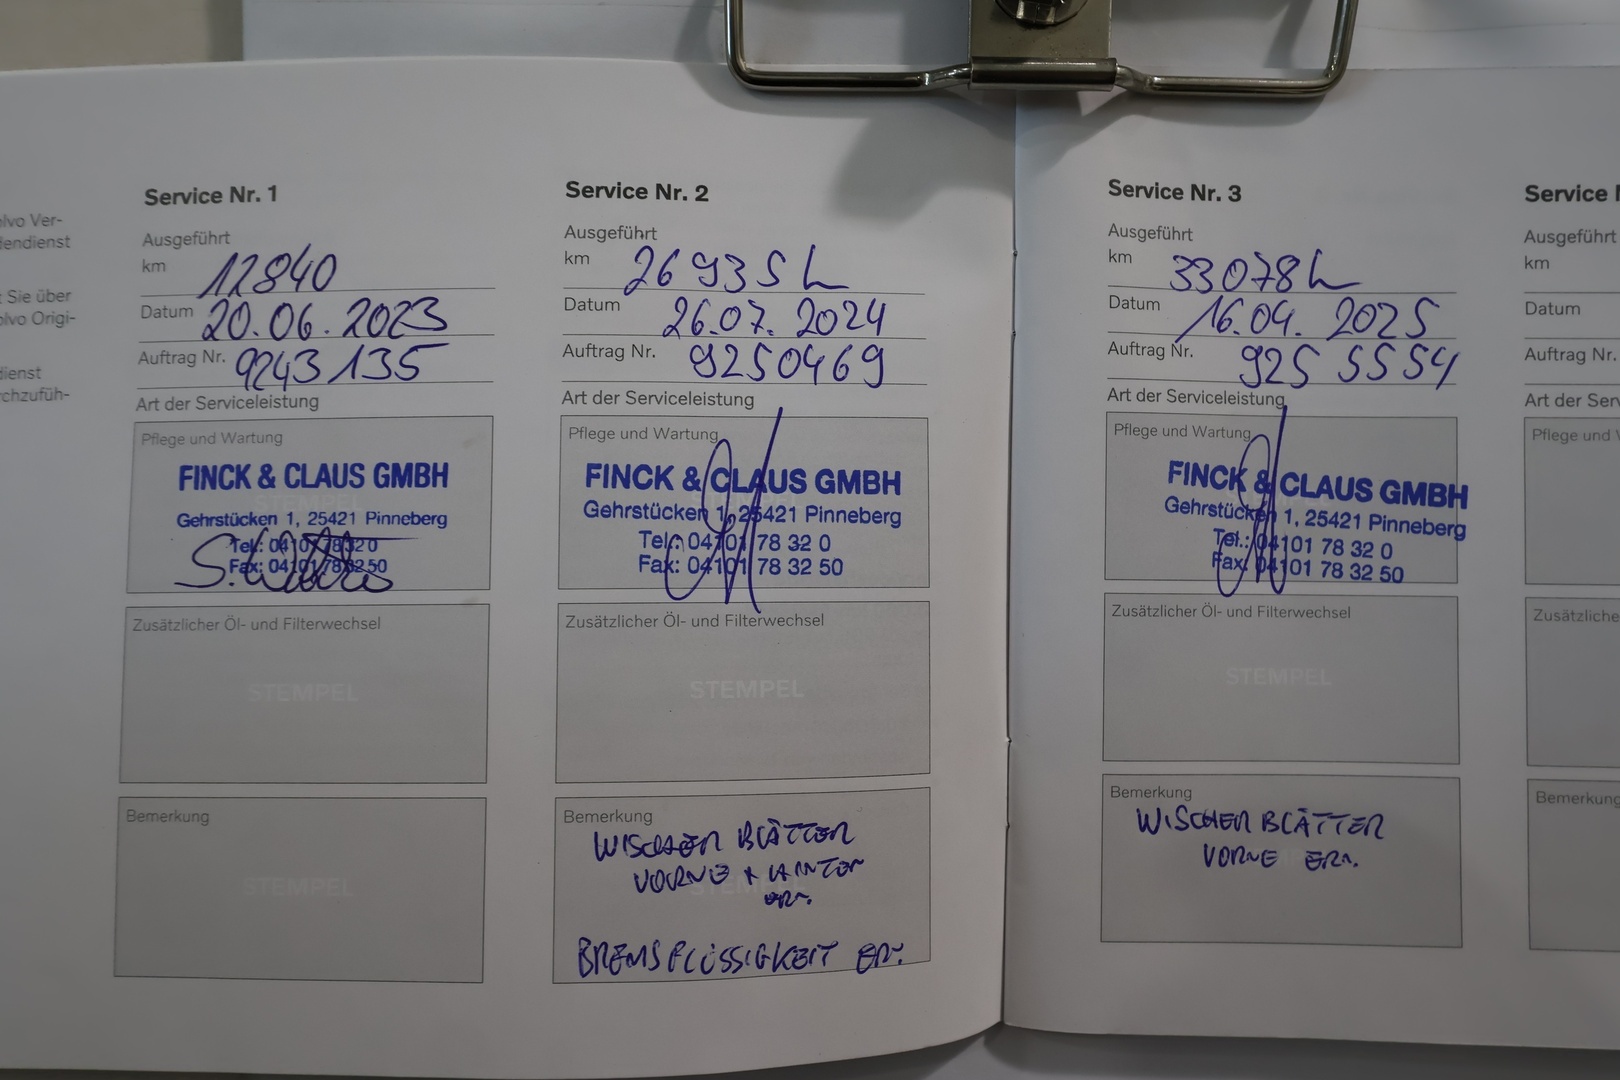 lvo Ver-
dendienst
t Sie über
olvo Origi-
dienst
rchzufüh-
Service Nr. 1
Ausgeführt
km 12840
Datum 20.06.2023
Auftrag Nr. 9243135
Art der Serviceleistung
Pflege und Wartung
FINCK & CLAUS GMBH
Gehrstücken 1, 25421 Pinneberg
Tel.: 04101 78 32 0
Fax: 04101 78 32 50
Zusätzlicher Öl- und Filterwechsel
STEMPEL
Bemerkung
STEMPEL
Service Nr. 2
Ausgeführt
km 26935
Datum 26.07.2024
Auftrag Nr. 9250469
Art der Serviceleistung
Pflege und Wartung
FINCK & CLAUS GMBH
Gehrstücken 1, 25421 Pinneberg
Tel.: 04101 78 32 0
Fax: 04101 78 32 50
Zusätzlicher Öl- und Filterwechsel
STEMPEL
Bemerkung
WISCHER BLÄTTER
VORNE + HINTEN
ERN.
BREMSFLÜSSIGKEIT ERN.
Service Nr. 3
Ausgeführt
km 33078
Datum 16.04.2025
Auftrag Nr. 9255554
Art der Serviceleistung
Pflege und Wartung
FINCK & CLAUS GMBH
Gehrstücken 1, 25421 Pinneberg
Tel.: 04101 78 32 0
Fax: 04101 78 32 50
Zusätzlicher Öl- und Filterwechsel
STEMPEL
Bemerkung
WISCHER BLÄTTER
VORNE ERN.
Service N
Ausgeführt
km
Datum
Auftrag Nr.
Art der Serv
Pflege und W
Zusätzliche
Bemerkung